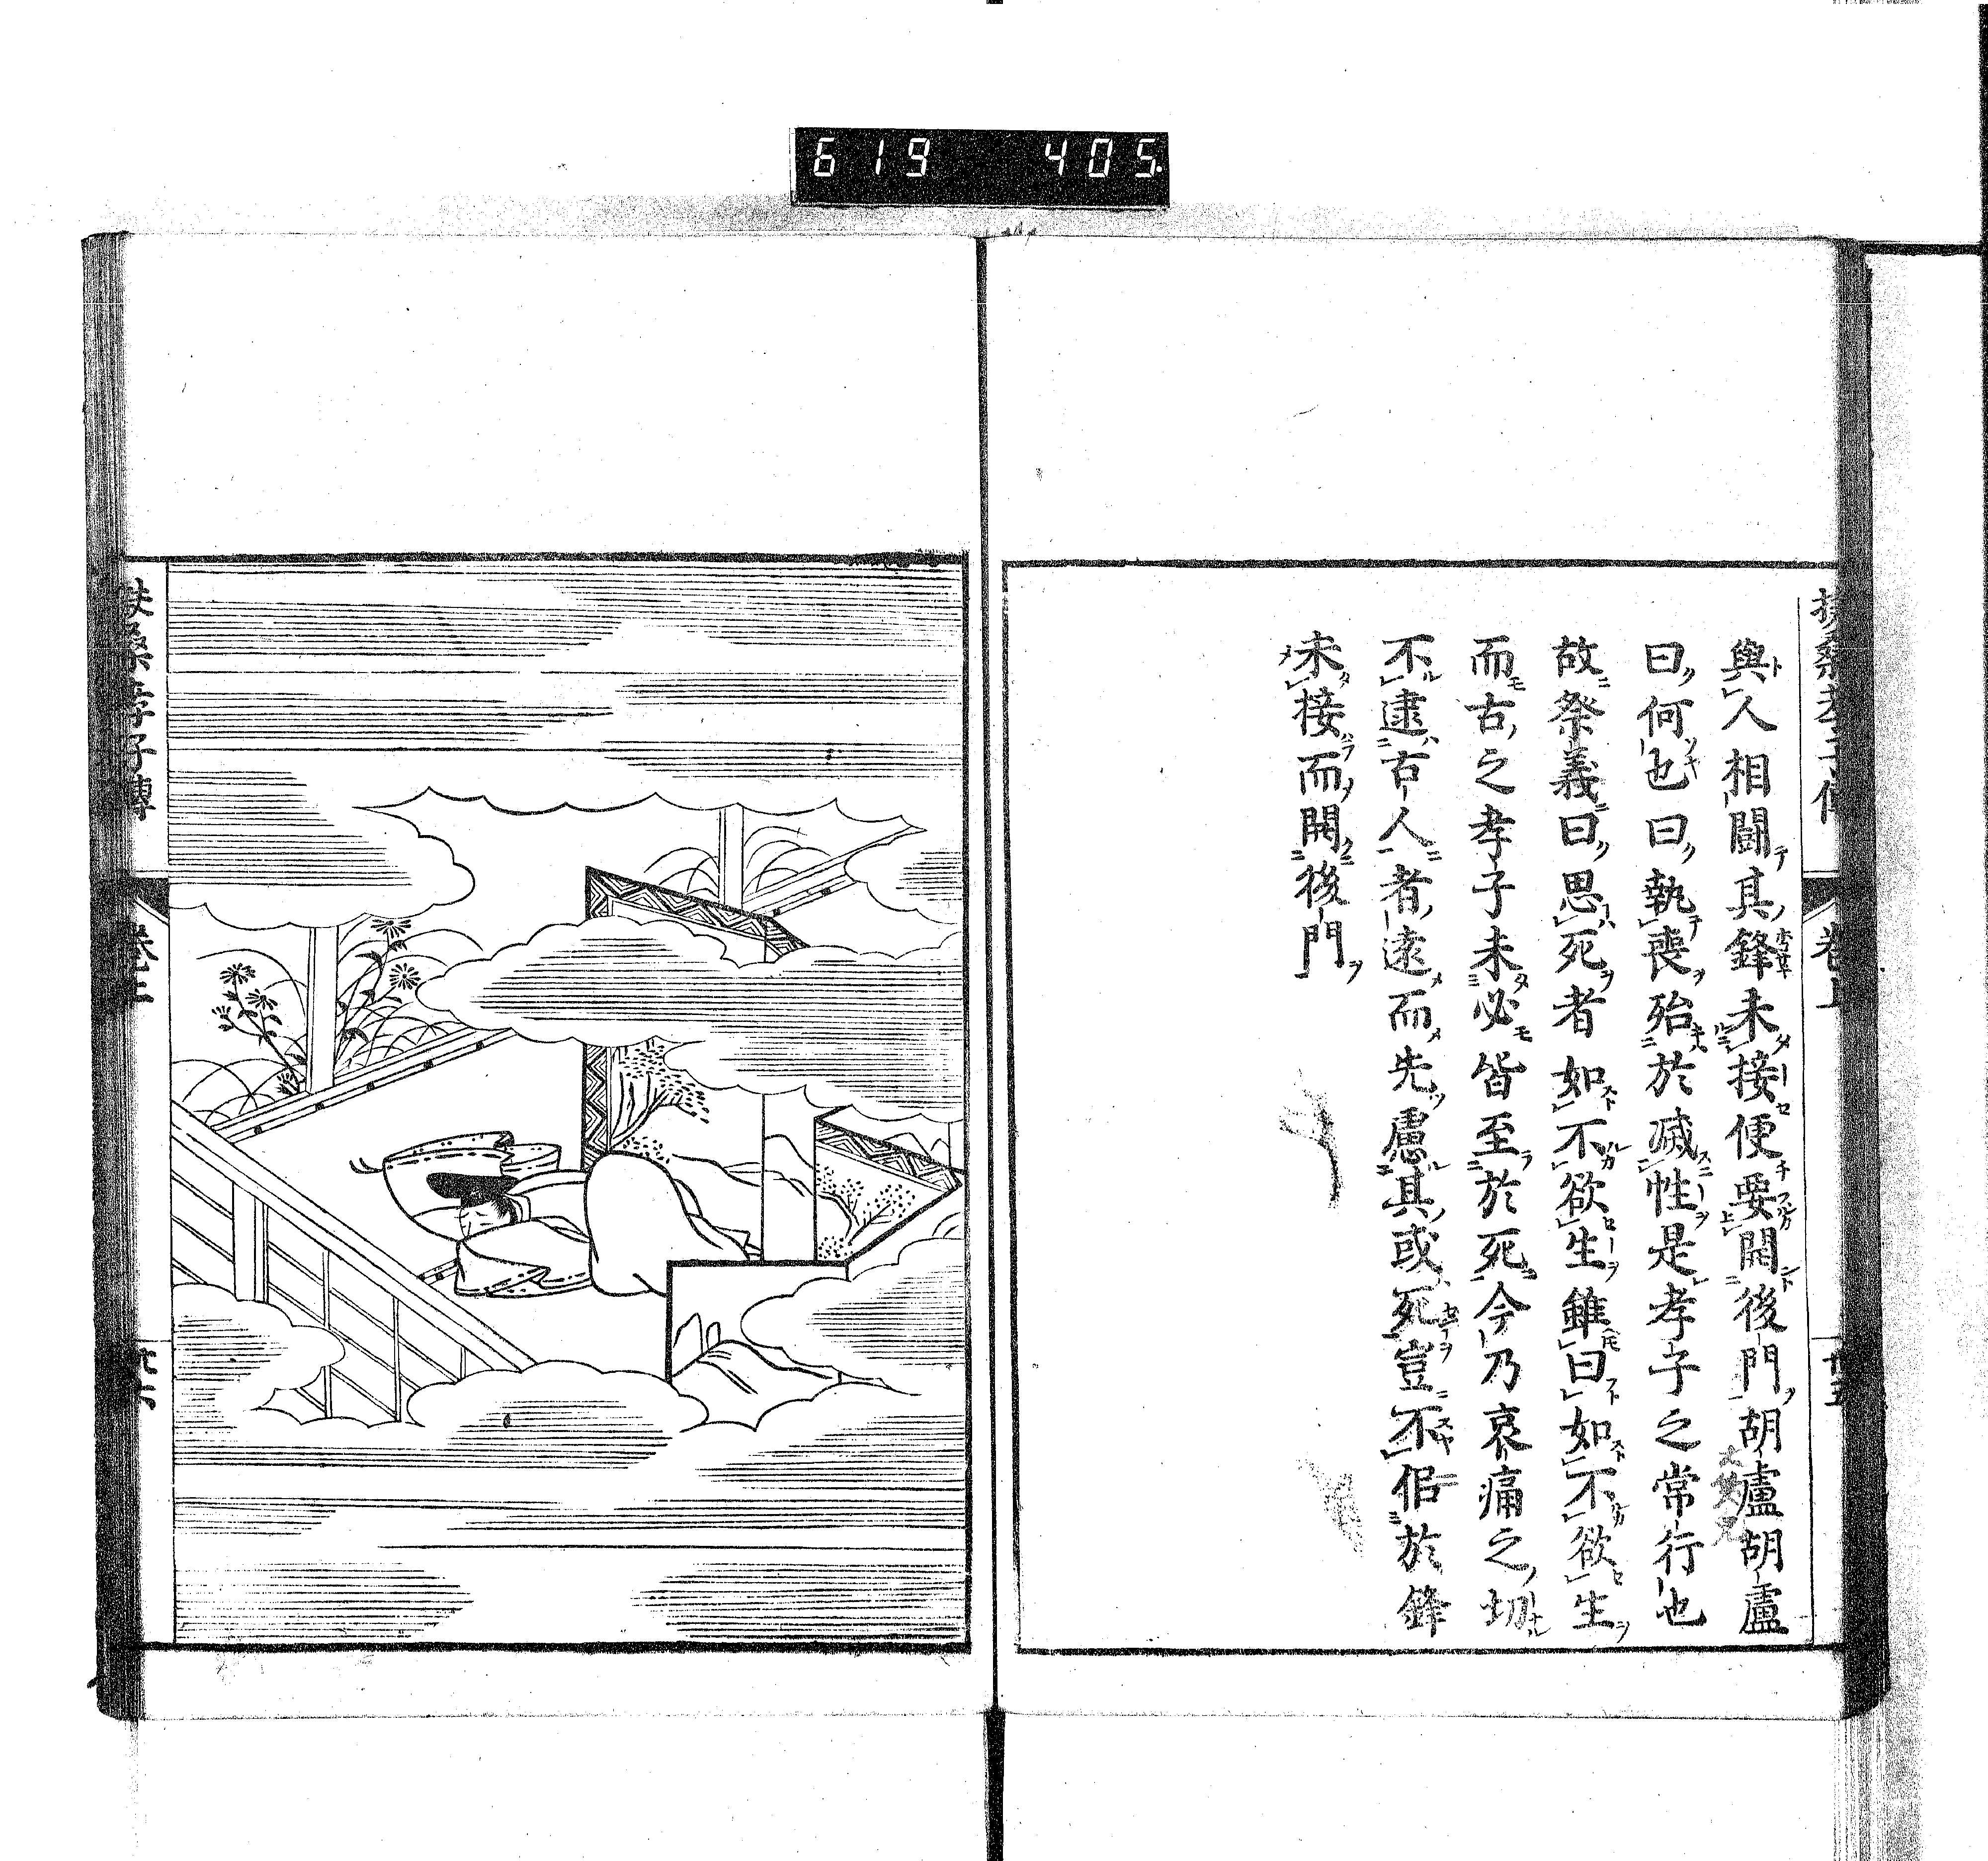 619 405
扶桑孝子傳
卷上
廿五
與人相鬪其鋒未接便要開後門胡盧胡盧
曰何也曰執喪殆於滅性是孝子之常行也
故祭義曰思死者如不欲生雖曰如不欲生
而古之孝子未必皆至於死今乃哀痛之切
不逮古人者遠而先慮其或死豈不侣於鋒
未接而開後門
扶桑孝子傳
卷上